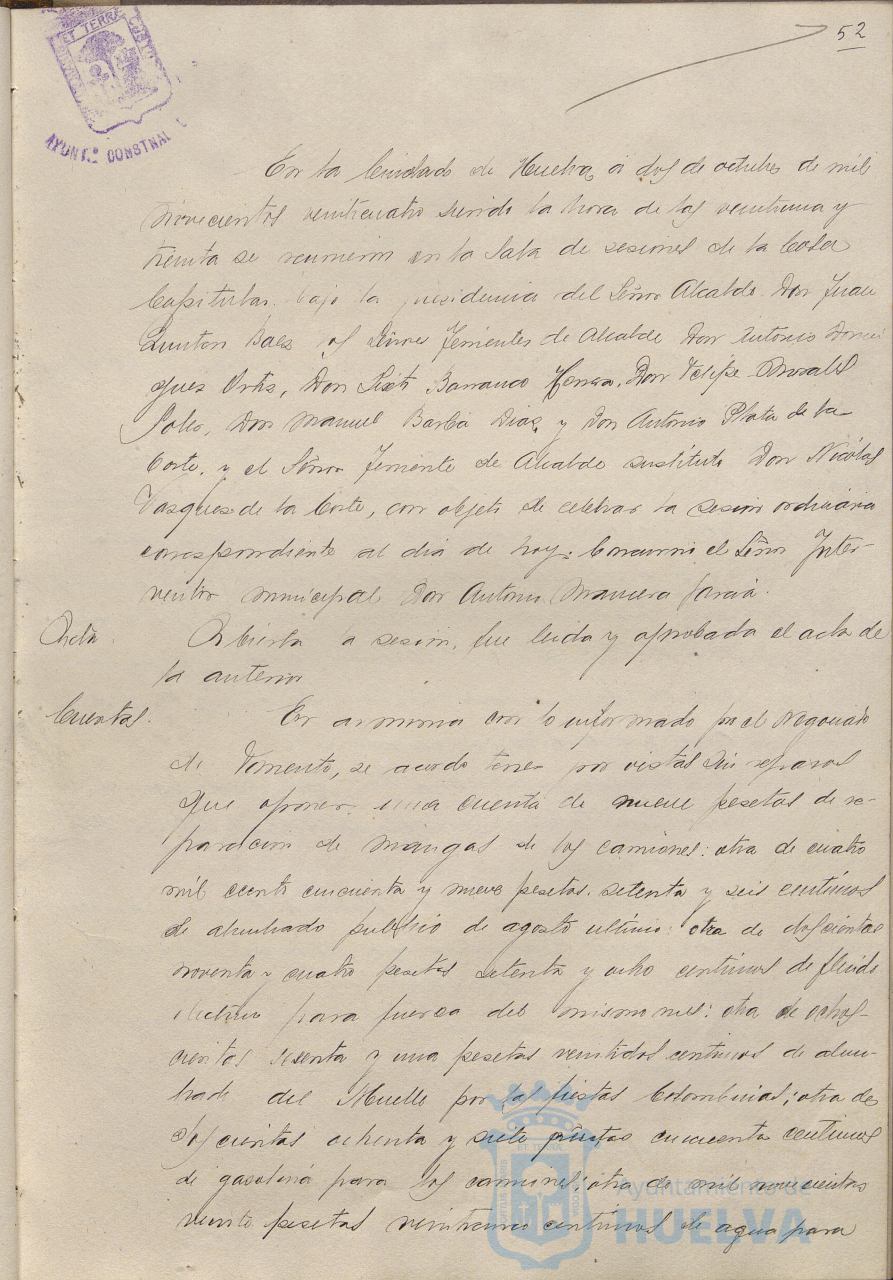 52
ET TERRÆ CUSTO
AYUNT.º CONSTNAL
En la Ciudad de Huelva, a dos de octubre de mil
novecientos veinticuatro siendo la hora de las veintiuna y
treinta se reunieron en la Sala de sesiones de la Casa
Capitular, bajo la presidencia del Señor Alcalde Don Juan
Quintero Baez los Señores Tenientes de Alcalde Don Antonio Domin
guez Ortiz, Don Barranco Don Felipe Morales
Don Manuel Barba Diaz, y Don Antonio Plata de la
Corte, y el Señor Teniente de Alcalde sustituto Don Nicolas
Vazquez de la Corte, con objeto de celebrar la sesion ordinaria
correspondiente al dia de hoy. Concurrio el Señor Inter-
ventor municipal Don Antonio Mancera
Acta. Abierta la sesion, fue leida y aprobada el acta de
la anterior
Cuentas. En armonia con lo informado por el Negociado
de Fomento, se acordo tener por vistas sin reparos
que oponer una cuenta de nueve pesetas de re-
paracion de mangas de los camiones: otra de cuatro
mil ciento cincuenta y nueve pesetas, setenta y seis centimos
de alumbrado publico de agosto ultimo: otra de doscientas
noventa y cuatro pesetas setenta y ocho centimos de fluido
electrico para fuerza del mismo mes: otra de ochos-
cientas sesenta y una pesetas veintidos centimos de alum-
brado del Muelle por las fiestas Colombinas; otra de
doscientas ochenta y siete pesetas cincuenta centimos
de gasolina para los camiones; otra de mil novecientas
veinte pesetas veinticinco centimos de agua para
Ayuntamiento de
HUELVA